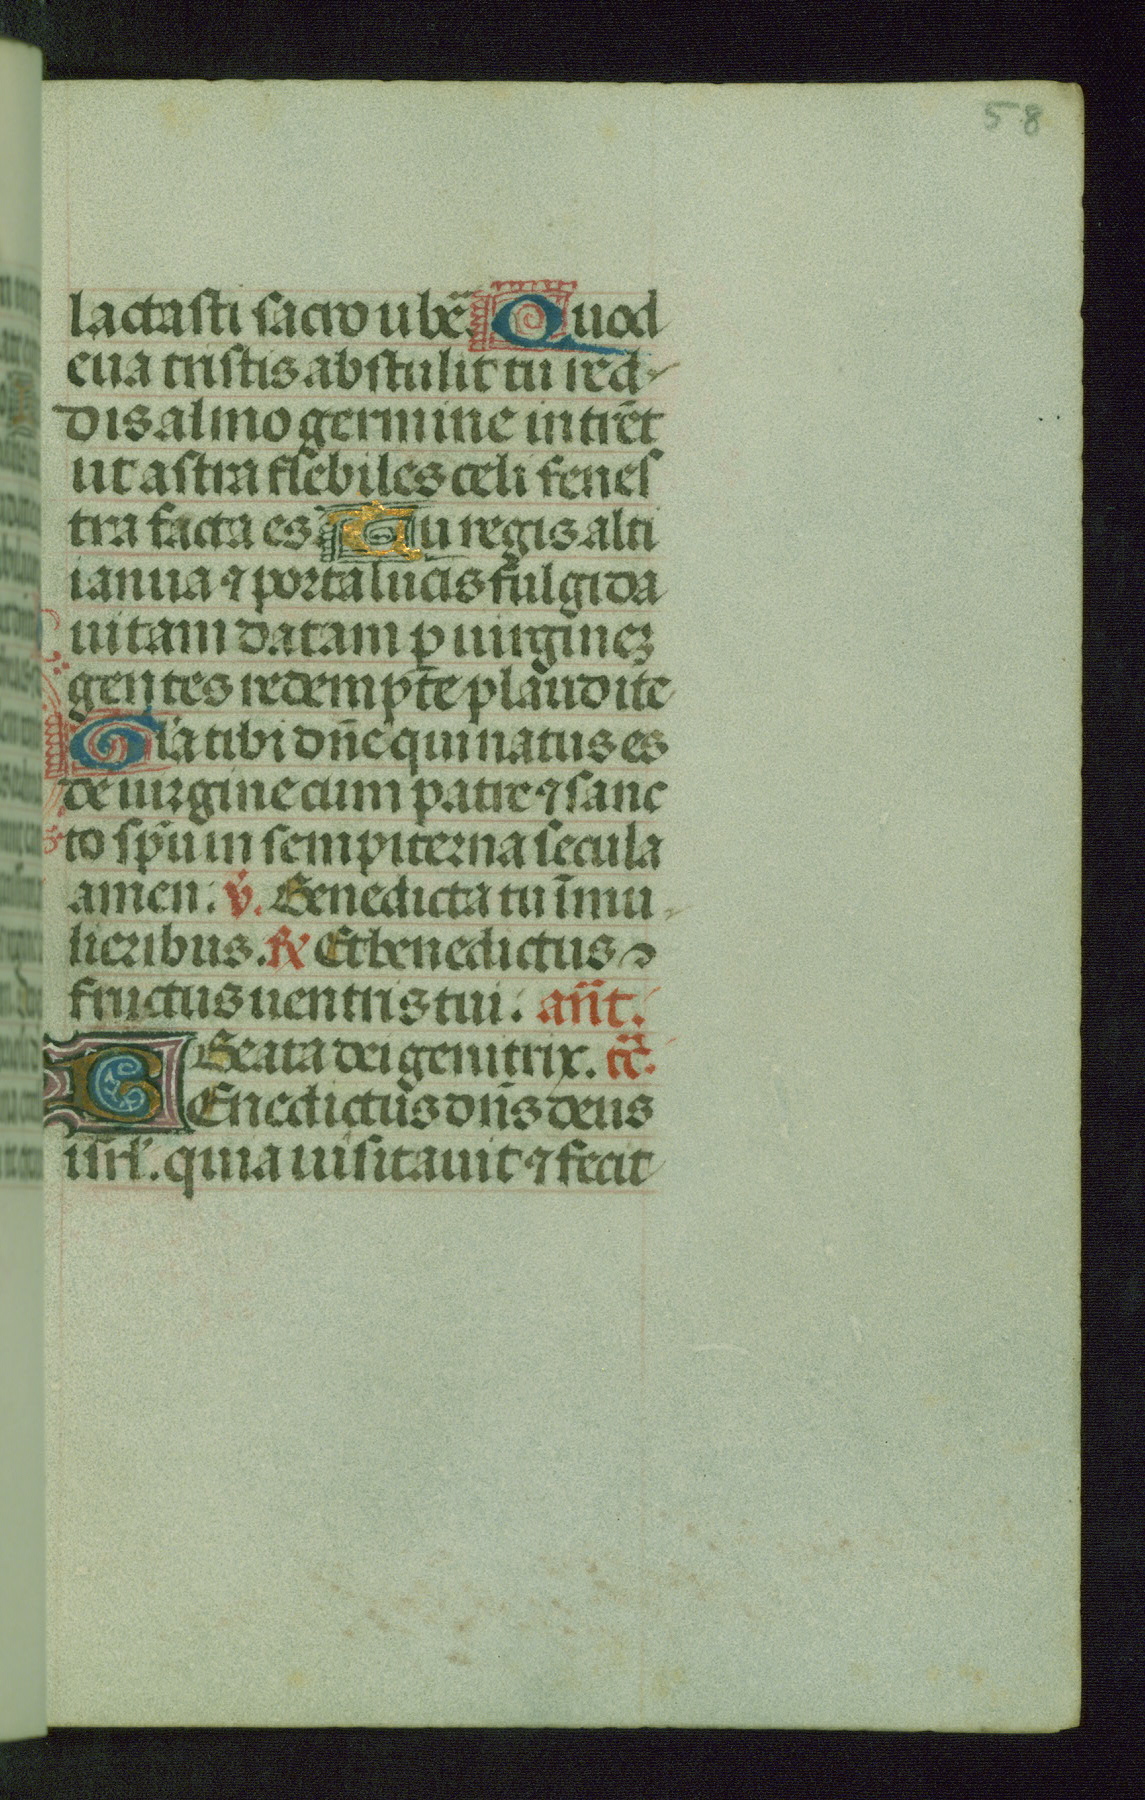 58
lactasti sacro ubē. Quod
eua tristis abstulit tu red-
dis almo germine intrēt
ut astra flebiles celi fenes
tra facta es. Tu regis alti
ianua ⁊ porta lucis fulgida
uitam datam ꝑ uirgineꝫ
gentes redempte plaudite
Gla tibi dn̄e qui natus es
de uirgine cum patre ⁊ sanc
to sp̄u in sempiterna secula
amen. ℣. Benedicta tu ī mu
lieribus. ℟ Et benedictus
fructus uentris tui. an̄t.
Beata dei genitrix. c̄c̄.
BEnedictus dn̄s deus
isrl̄. quia uisitauit ⁊ fecit